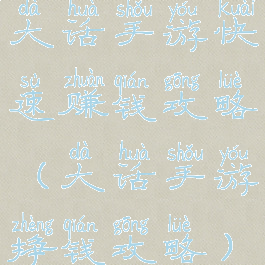 dà huà shǒu yóu kuài
大话手游快
sù zhuàn qián gōng lüè
速赚钱攻略
dà huà shǒu yóu
（大话手游
zhèng qián gōng lüè
挣钱攻略）